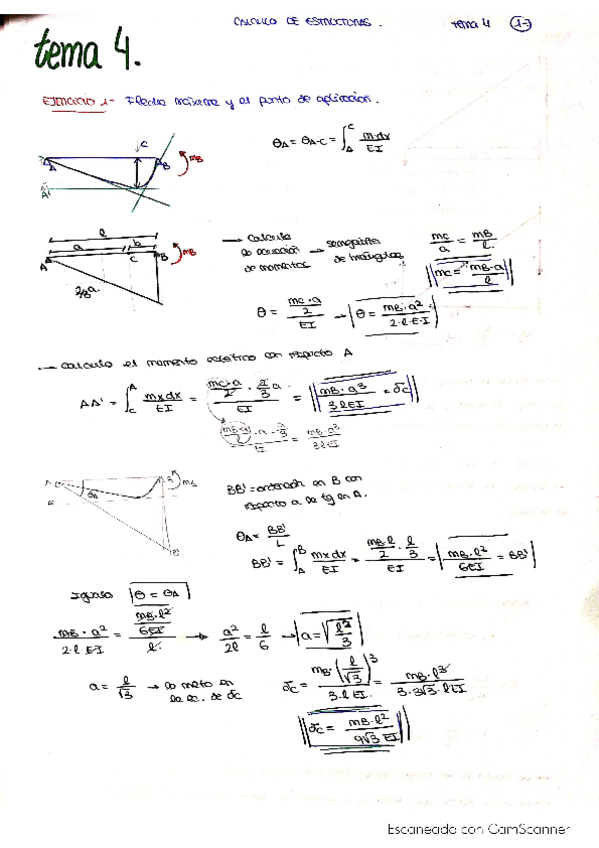 CALCULO DE ESTRUCTURAS. tema 4 1-
tema 4.
EJERCICIO 1- Flecha máxima y el punto de aplicación.
θA = θA-C = ∫_A^C m·dx / EI
C
A B mB
A'
l
a b
A C B mB
2/3 a
→ calculo la ecuación de momentos → semejanza de triángulos
mc / a = mB / l
mc = mB·a / l
θ = (mc·a / 2) / EI → θ = mB·a² / 2·l·E·I
→ calculo el momento estático con respecto A
AA' = ∫_C^A mx dx / EI = (mc·a / 2 · 2/3 a) / EI = mB·a³ / 3lEI = δc
mB·a³ / 3lEI
θA mB
BB' = ordenada en B con
respecto a la tg en A.
θA = BB' / L
BB' = ∫_A^B mx dx / EI = (mB·l / 2 · l / 3) / EI = mB·l² / 6EI = BB'
Igualo θ = θA
mB·a² / 2·l·E·I = (mB·l² / 6EI) / l → a² / 2l = l / 6 → a = √(l² / 3)
a = l / √3 → lo meto en la ec. de δc
δc = mB·(l / √3)³ / 3·l·EI = mB·l³ / 3·3√3·lEI
δc = mB·l² / 9√3 EI
Escaneado con CamScanner